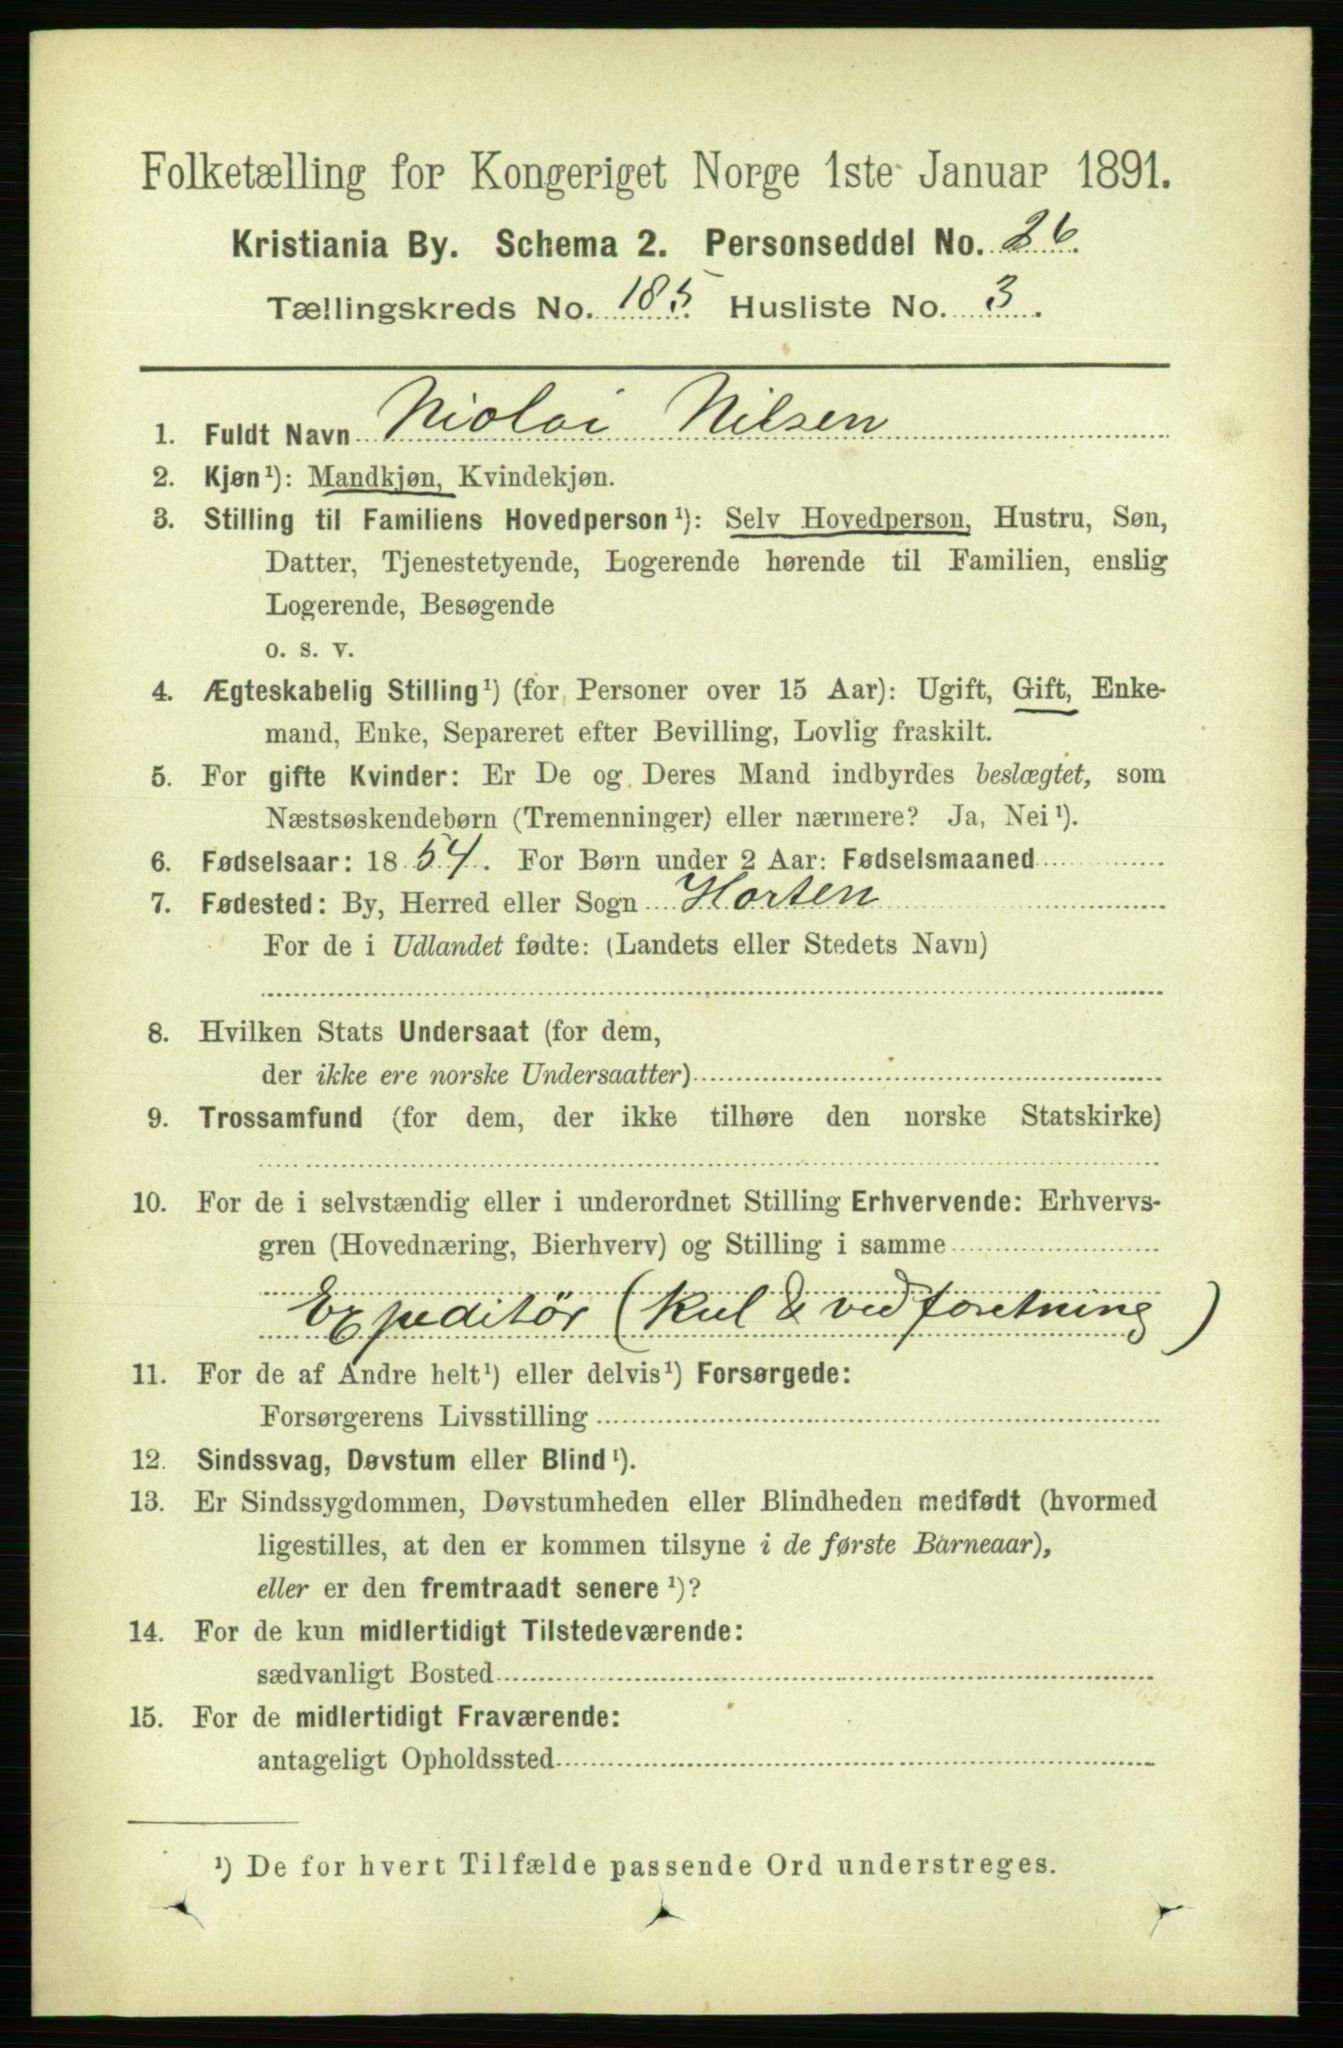 Folketælling for Kongeriget Norge 1ste Januar 1891.
Kristiania By. Schema 2. Personseddel No. 26.
Tællingskreds No. 185. Husliste No. 3.
1. Fuldt Navn Niolai Nilsen
2. Kjøn¹): Mandkjøn, Kvindekjøn.
3. Stilling til Familiens Hovedperson¹): Selv Hovedperson, Hustru, Søn,
Datter, Tjenestetyende, Logerende hørende til Familien, enslig
Logerende, Besøgende
o. s. v.
4. Ægteskabelig Stilling¹) (for Personer over 15 Aar): Ugift, Gift, Enke-
mand, Enke, Separeret efter Bevilling, Lovlig fraskilt.
5. For gifte Kvinder: Er De og Deres Mand indbyrdes beslægtet, som
Næstsøskendebørn (Tremenninger) eller nærmere? Ja, Nei¹).
6. Fødselsaar: 1854. For Børn under 2 Aar: Fødselsmaaned
7. Fødested: By, Herred eller Sogn Horten
For de i Udlandet fødte: (Landets eller Stedets Navn)
8. Hvilken Stats Undersaat (for dem,
der ikke ere norske Undersaatter)
9. Trossamfund (for dem, der ikke tilhøre den norske Statskirke)
10. For de i selvstændig eller i underordnet Stilling Erhvervende: Erhvervs-
gren (Hovednæring, Bierhverv) og Stilling i samme
Expeditør (Kul & vedforetning)
11. For de af Andre helt¹) eller delvis¹) Forsørgede:
Forsørgerens Livsstilling
12. Sindssvag, Døvstum eller Blind¹).
13. Er Sindssygdommen, Døvstumheden eller Blindheden medfødt (hvormed
ligestilles, at den er kommen tilsyne i de første Barneaar),
eller er den fremtraadt senere¹)?
14. For de kun midlertidigt Tilstedeværende:
sædvanligt Bosted
15. For de midlertidigt Fraværende:
antageligt Opholdssted
¹) De for hvert Tilfælde passende Ord understreges.